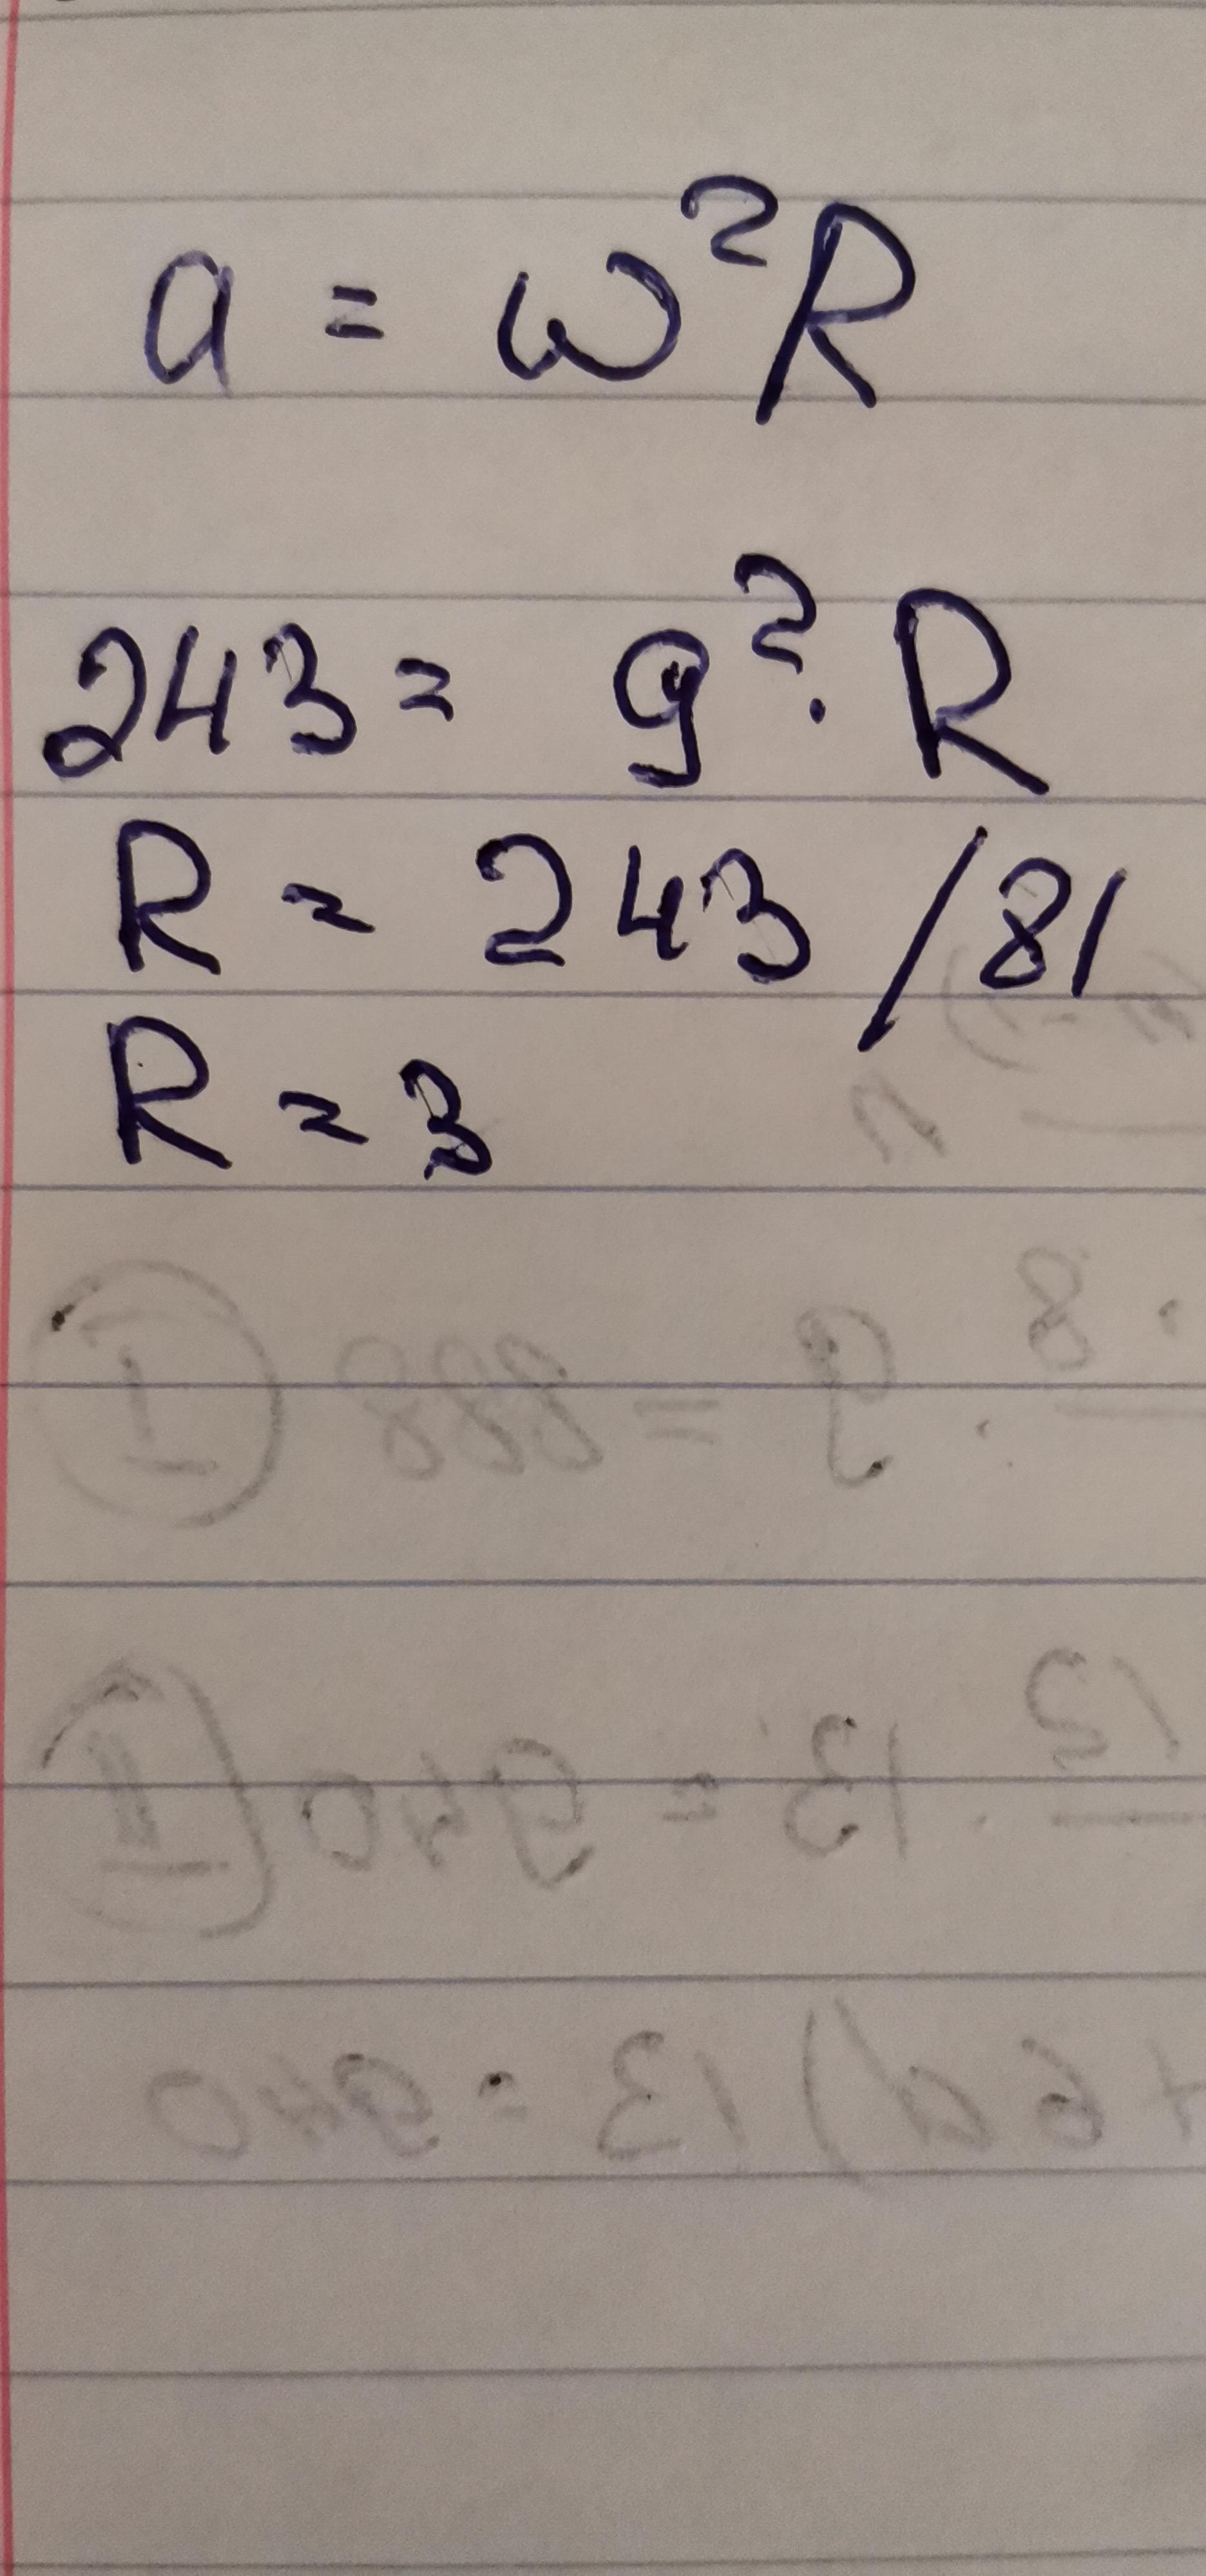 a = ω²R
243 = 9² · R
R = 243 / 81
R = 3